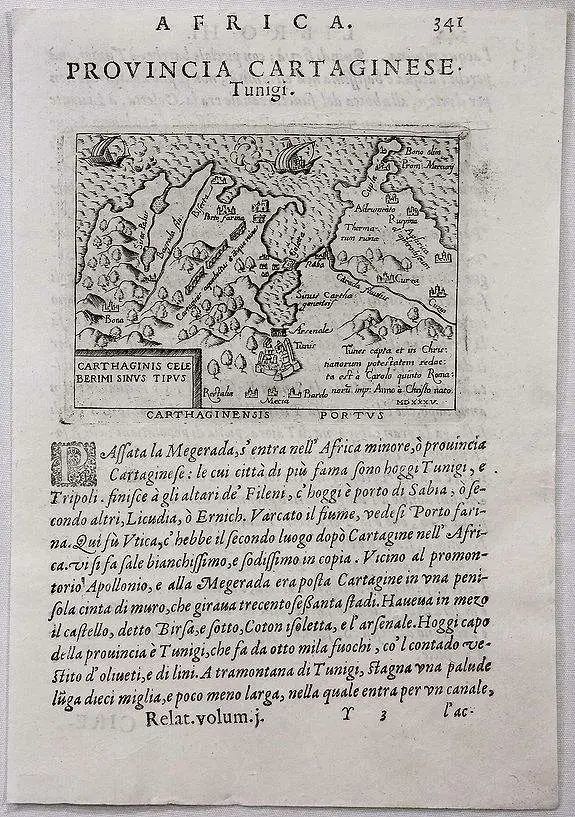 AFRICA.
341
PROVINCIA CARTAGINESE.
Tunigi.
Bono olim
Prom: Mercurij
Calibia
Biserta
Porto farina
Adrumento
Ruspina
Therma-
rum ruinæ
Goletta
Raba
Carthaginis
Sinus Cartha
ginensis
Bona
Arsenale
Tunis
CARTHAGINIS CELE
BERIMI SINVS TIPVS
Rostalia
Mecia
Bardo
Tunes capta et in Chris-
tianorum potestatem redac-
ta est à Carolo quinto Roma-
noru imp: Anno à Christo nato
MDXXXV.
CARTHAGINENSIS PORTVS
PAssata la Megerada, s'entra nell'Africa minore, ò prouincia
Cartaginese: le cui città di più fama sono hoggi Tunigi, e
Tripoli. finisce à gli altari de' Fileni, c'hoggi è porto di Sabia, ò se-
condo altri, Licudia, ò Ernich. Varcato il fiume, vedesi Porto fari-
na. Qui fù Vtica, c'hebbe il secondo luogo dopò Cartagine nell'Afri-
ca. vi si fa sale bianchissimo, e sodissimo in copia. Vicino al promon-
torio Apollonio, e alla Megerada era posta Cartagine in vna peni-
sola cinta di muro, che giraua trecentosessanta stadi. Haueua in mezo
il castello, detto Birsa, e sotto, Coton isoletta, e l'arsenale. Hoggi capo
della prouincia è Tunigi, che fa da otto mila fuochi, co'l contado ve-
stito d'oliueti, e di lini. A tramontana di Tunigi, stagna vna palude
lũga dieci miglia, e poco meno larga, nella quale entra per vn canale,
Relat. volum. j. Y 3 l'ac-